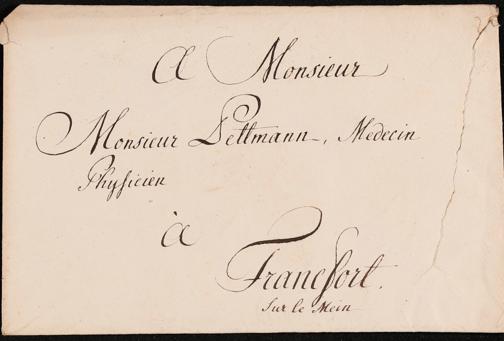 A Monsieur
Monsieur Pettmann, Medecin
Physicien
à
Francfort.
sur le Mein